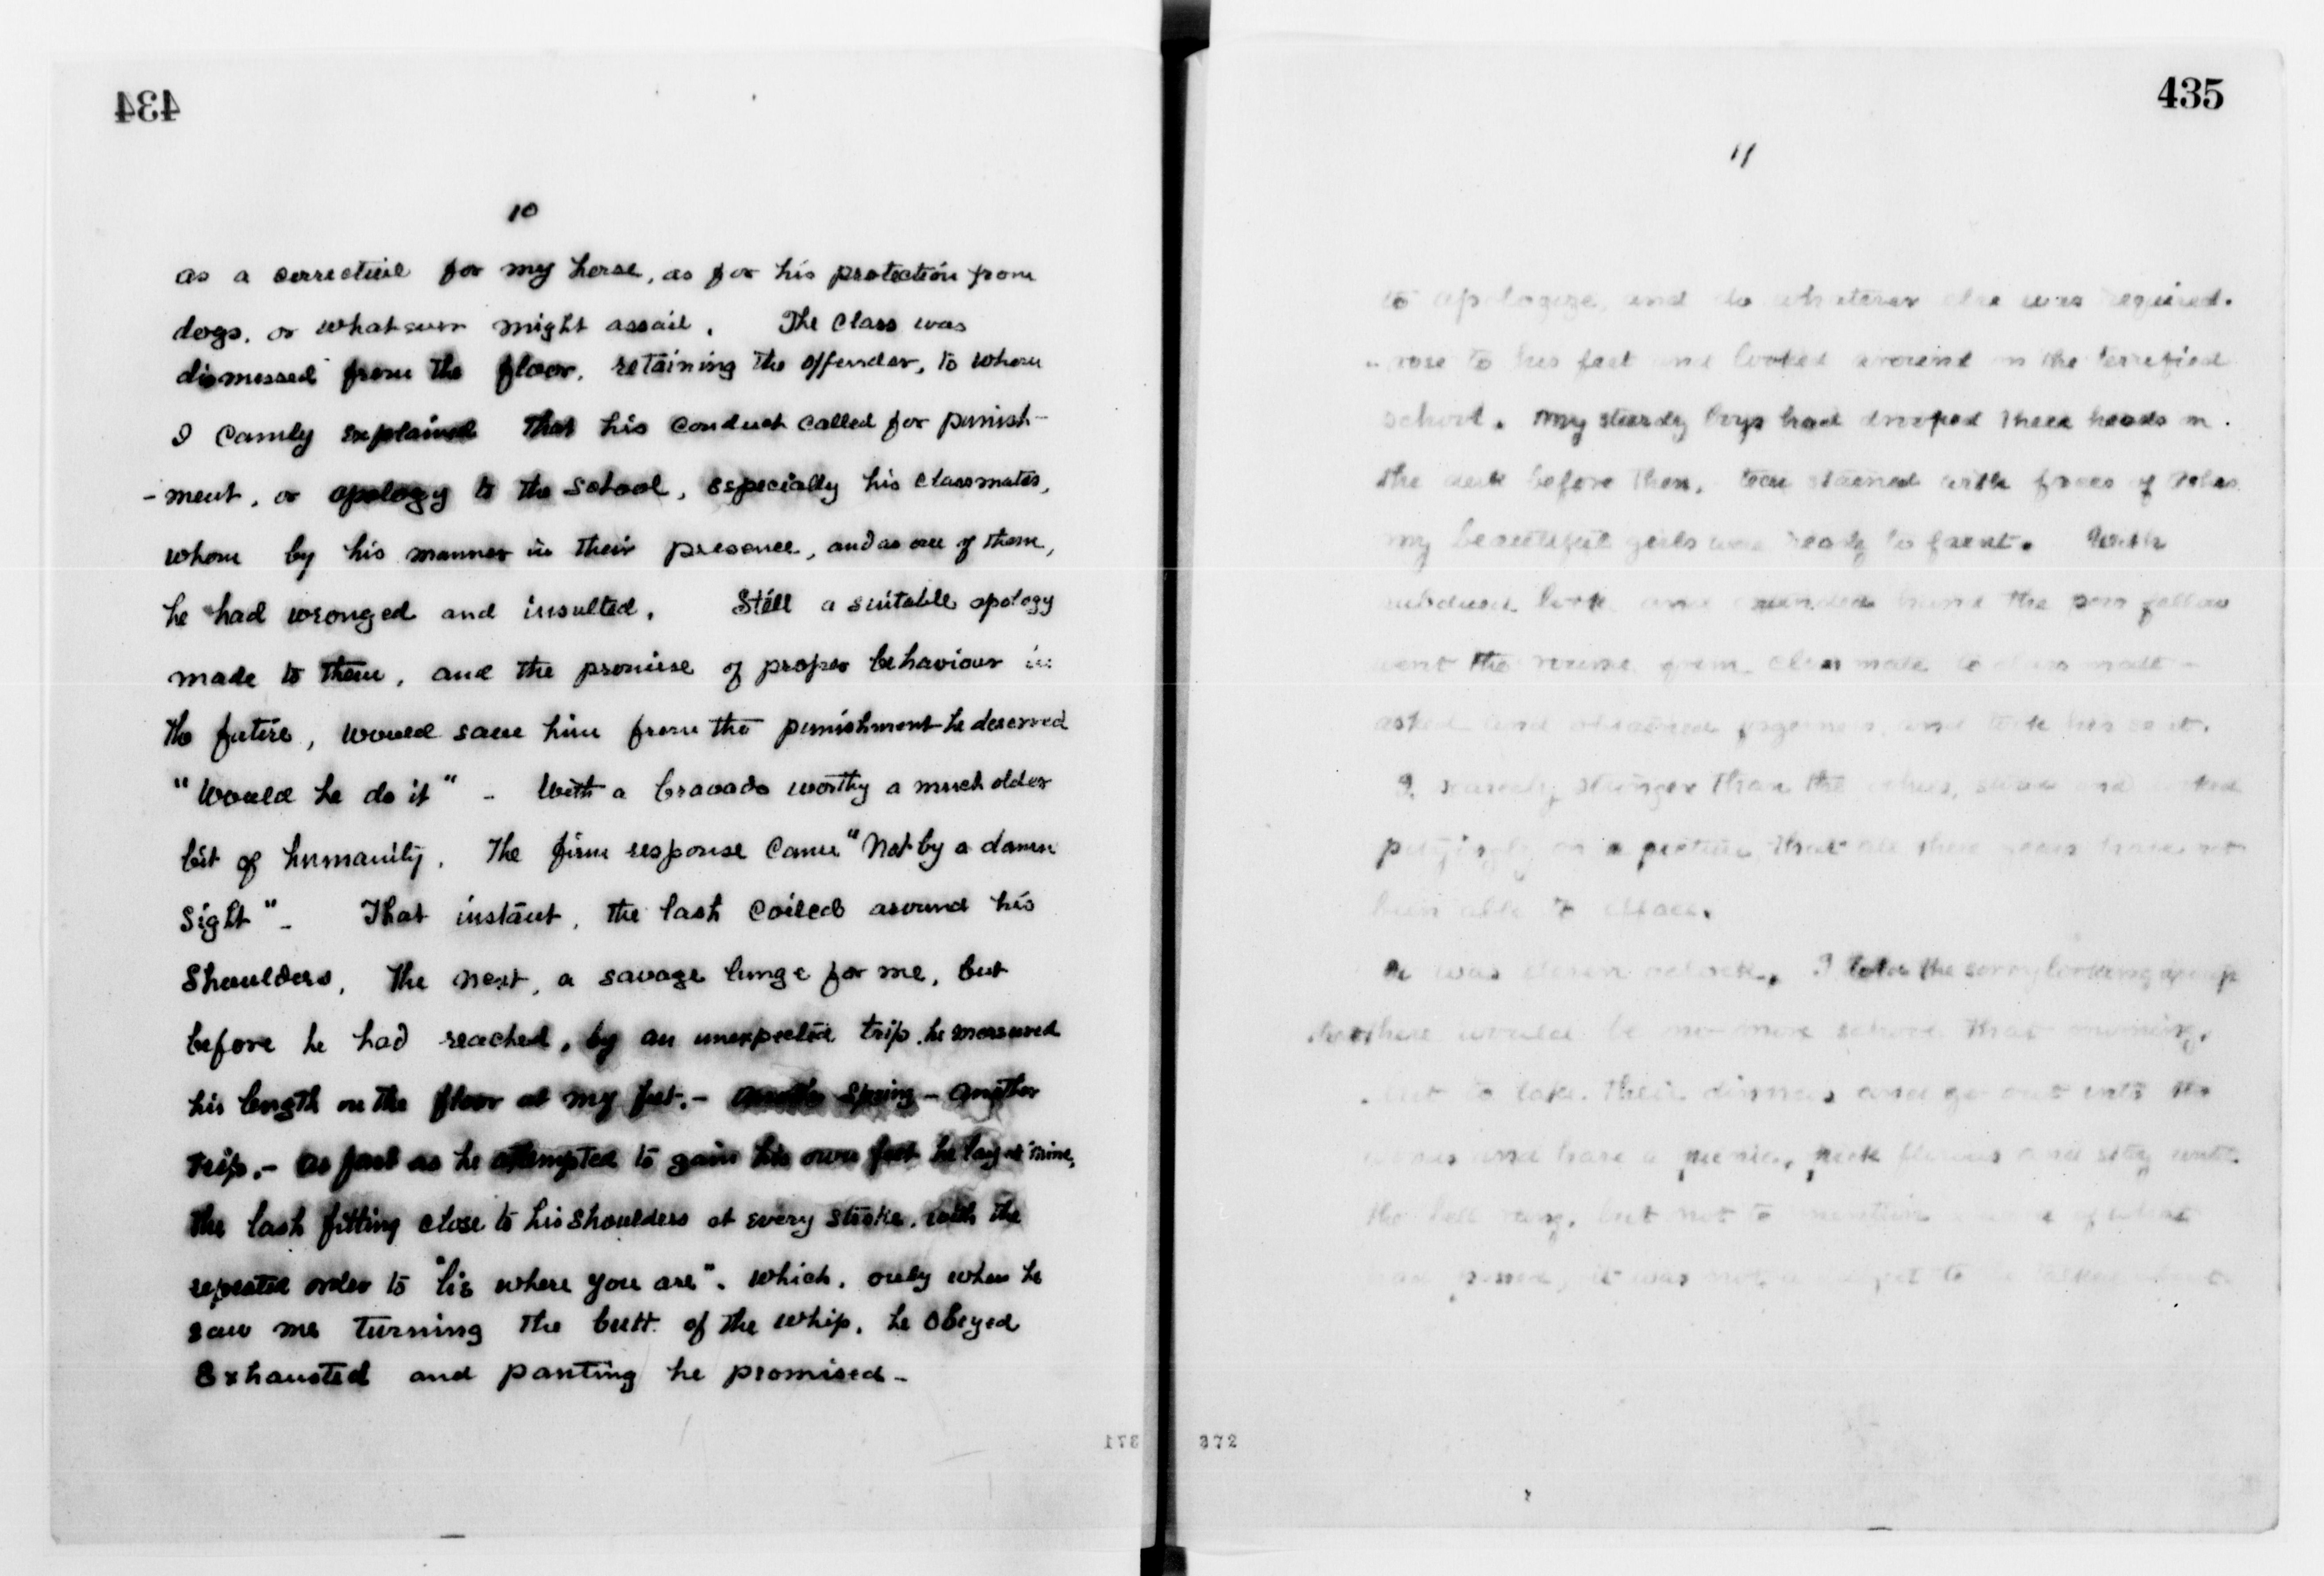 434
10
as a corrective for my horse, as for his protection from
dogs, or whatsoever might assail. The class was
dismissed from the floor, retaining the offender, to whom
I camly explained that his conduct called for punish-
-ment, or apology to the school, especially his classmates,
whom by his manner in their presence, and as one of them,
he had wronged and insulted. Still a suitable apology
made to them, and the promise of proper behaviour in
the future, would save him from the punishment he deserved
"Would he do it" - With a bravado worthy a much older
bit of humanity. The firm response came "Not by a damn
sight" - That instant, the lash coiled around his
shoulders, The next, a savage lunge for me, but
before he had reached, by an unexpected trip he measured
his length on the floor at my feet. - another spring - another
trip. - as fast as he attempted to gain his own feet he lay at mine,
the lash fitting close to his shoulders at every stroke, with the
repeated order to "lie where you are". Which, only when he
saw me turning the butt of the whip, he obeyed
Exhausted and panting he promised -
171
435
11
to apologize, and do whatever else was required.
rose to his feet and looked around on the terrified
school. My sturdy boys had dropped their heads on
the desk before them, tear stained with faces of ashes
my beautiful girls were ready to faint. With
subdued look and the poor fellow
went the round from class mate to class mate -
asked and obtained forgiveness, and took his seat.
I, scarcely stronger than the others, and looked
pityingly on a picture that all these years have not
been able to efface.
It was eleven oclock. I told the sorry looking group
there would be no more school that morning,
but to take their dinners and go out into the
woods and have a picnic, pick flowers and stay until
the bell rang, but not to mention of what
had passed, it was not a subject to be talked about.
372